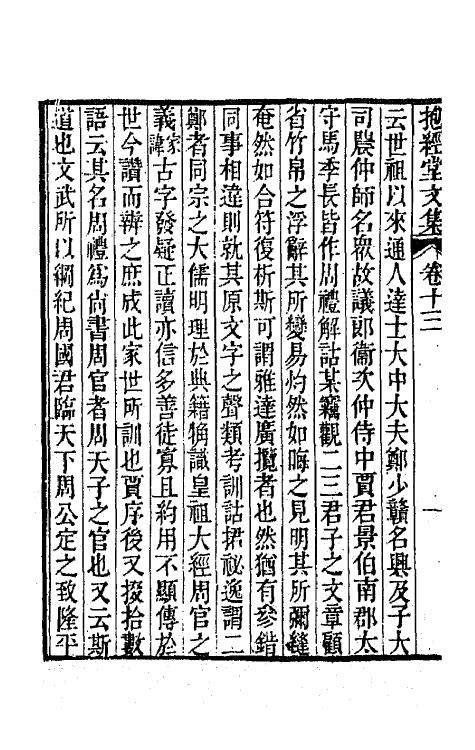 抱經堂文集 卷十三 一
云世祖以來通人達士大中大夫鄭少贛名興及子大
司農仲師名眾故議郎衞次仲侍中賈君景伯南郡太
守馬季長皆作周禮解詁某竊觀二三君子之文章顧
省竹帛之浮辭其所變易灼然如晦之見明其所彌縫
奄然如合符復析斯可謂雅達廣攬者也然猶有參錯
同事相違則就其原文字之聲類考訓詁捃祕逸謂二
鄭者同宗之大儒明理於典籍觕識皇祖大經周官之
義家諱古字發疑正讀亦信多善徒寡且約用不顯傳於
世今讚而辨之庶成此家世所訓也賈序後又掇拾數
語云其名周禮爲尚書周官者周天子之官也又云斯
道也文武所以綱紀周國君臨天下周公定之致隆平